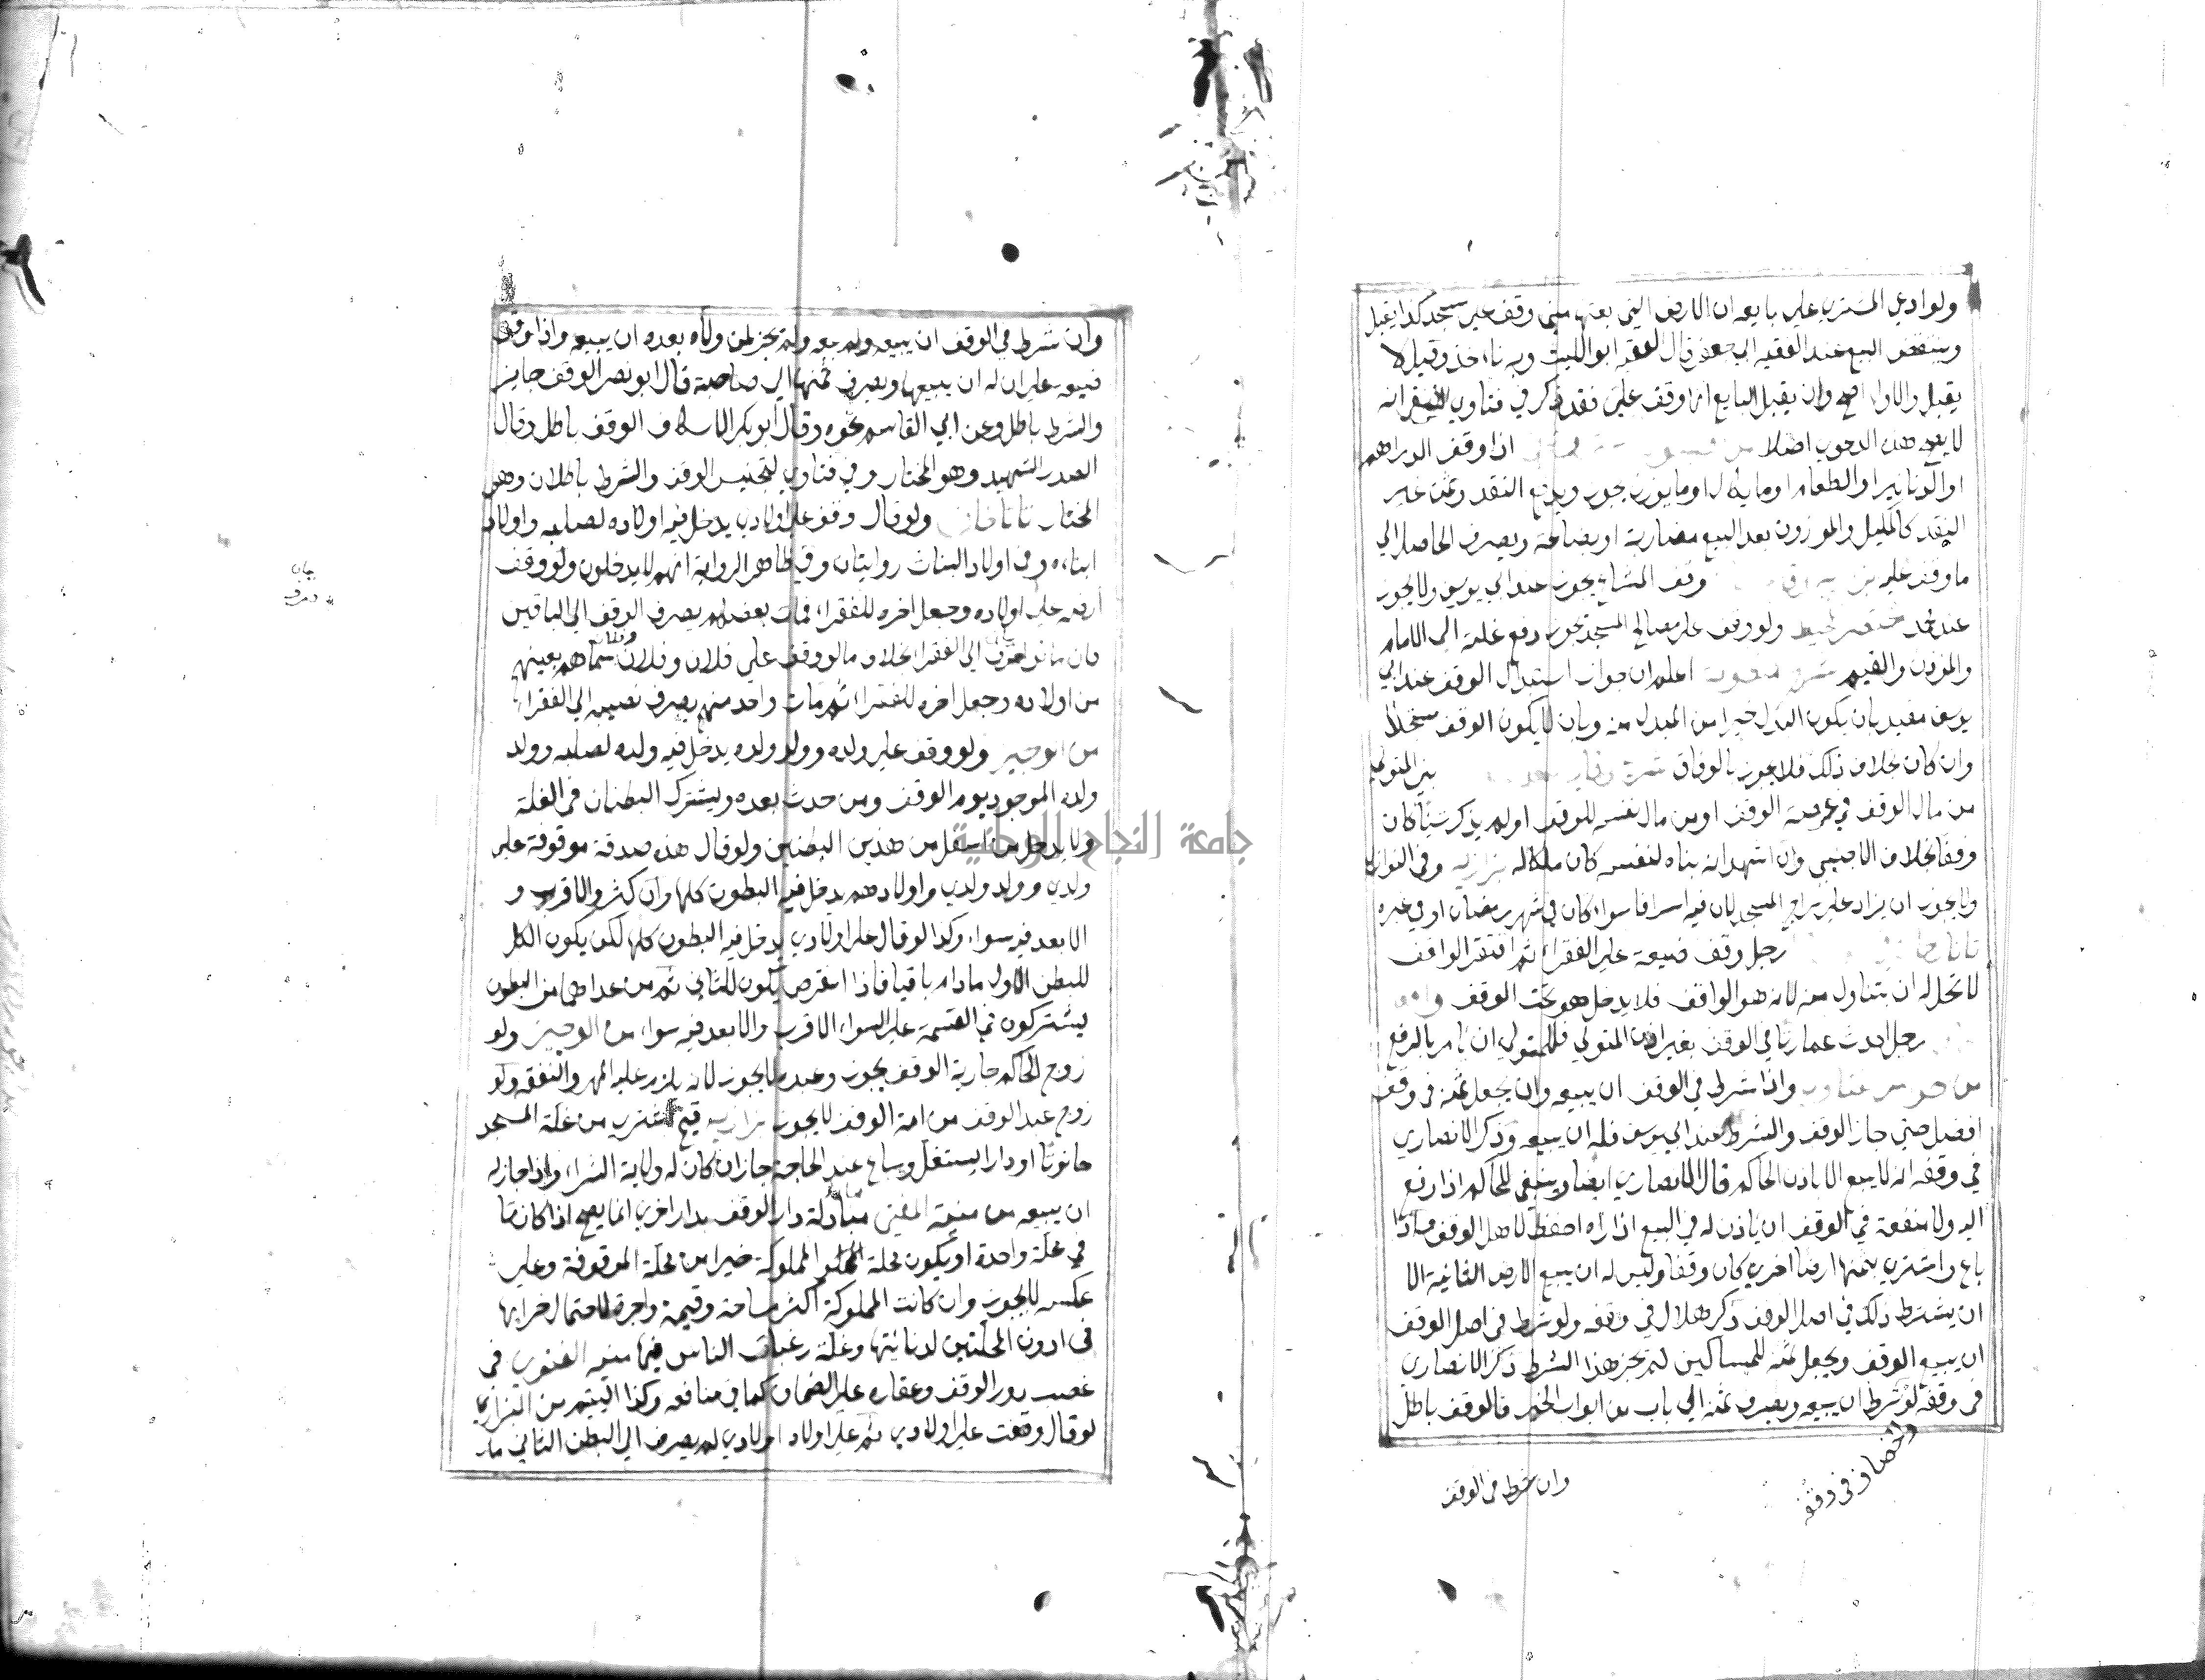 ولو ادعى المشتري على بايعه ان الارض التي بعتها مني وقف على مسجد كذا يقبل
وينتقض البيع عند الفقيه ابي جعفر قال الفقيه ابو الليث وبه ناخذ وقيل لا
يقبل والاول اصح وان يقبل البايع انها وقف على فقد ذكر في فتاوى انه
لا هذه الدعوى اصلا اذا وقف الدراهم
او الدنانير او الطعام او ما يكال او ما يوزن يجوز ويدفع النقد وثمن غير
النقد كالمكيل والموزون بعد البيع مضاربة او بضاعة ويصرف الحاصل الى
ما وقف عليه وقف المشاع يجوز عند ابي يوسف ولا يجوز
عند محمد ولو وقف على مصالح المسجد يجوز دفع غلته الى الامام
والمؤذن والقيم اعلم ان جواز استبدال الوقف عند ابي
يوسف مقيد بان يكون البدل خيرا من المبدل منه وبان لا يكون الوقف مسجلا
وان كان بخلاف ذلك فلا يجوز بالوفاق بنى المتولي
من مال الوقف في عرصة الوقف او من مال نفسه للوقف اولم يذكر شيئا كان
وقفا بخلاف الاجنبي وان اشهد انه بناه لنفسه كان ملكا له بزازيه وفي النوازل
ولا يجوز ان يزاد على سراج المسجد لان فيه اسرافا سواء كان في شهر رمضان او في غيره
رجل وقف ضيعة على الفقراء ثم افتقر الواقف
لا تحل له ان يتناول منه لانه هو الواقف فلا يدخل هو تحت الوقف
رجل احدث عمارة في الوقف بغير اذن المتولي فللمتولي ان يامر بالرفع
واذا شرط في الوقف ان يبيعه وان يجعل ثمنه في وقف
افضل حتى جاز الوقف والشرط عند ابي يوسف فله ان يبيعه وذكر الانصاري
في وقفه انه لا يبيع الا باذن الحاكم قال الانصاري ايضا وينبغي للحاكم اذا رفع
اليه ولا منفعة في الوقف ان ياذن له في البيع اذا راه احفظ لاهل الوقف
باع واشترى بثمنها ارضا اخرى كان وقفا وليس له ان يبيع الارض الثانية الا
ان يشترط ذلك في اصل الوقف ذكر هلال في وقفه ولو شرط في اصل الوقف
ان يبيع الوقف ويجعل ثمنه للمساكين لم يجز هذا الشرط ذكر الانصاري
في وقفه لو شرط ان يبيعه ويصرف ثمنه الى باب من ابواب الخير فالوقف باطل
والخصاف في وقفه
وان شرط في الوقف
وان شرط في الوقف ان يبيعه ولم يبعه ولم يجز لمن ولاه بعده ان يبيعه واذا وقف
ضيعة على ان له ان يبيعها ويصرف ثمنها الى حاجته قال ابو نصر الوقف جايز
والشرط باطل وعن ابي القاسم نحوه وقال ابو بكر الاسكاف الوقف باطل وقال
الصدر الشهيد وهو المختار وفي فتاوى التجنيس الوقف والشرط باطلان وهو
المختار ولو قال وقف على اولادي يدخل فيه اولاده لصلبه واولاد
ابناءه وفي اولاد البنات روايتان وفي ظاهر الرواية انهم لا يدخلون ولو وقف
ارضه على اولاده وجعل اخره للفقراء فمات بعضهم يصرف الوقف الى الباقين
فان ماتوا صرف الى الفقراء بخلاف ما لو وقف على فلان وفلان وفلان سماهم بعينهم
من اولاده وجعل اخره للفقراء ثم مات واحد منهم يصرف نصيبه الى الفقراء
من الوجيز ولو وقف على ولده وولد ولده يدخل فيه ولده لصلبه وولد
ولده الموجود يوم الوقف ومن حدث بعده ويشترك البطنان في الغلة
ولا يدخل من اسفل من هذين البطنين ولو قال هذه صدقة موقوفة على
ولدي وولد ولدي واولادهم يدخل فيه البطون كلها وان كثر والاقرب و
الابعد فيه سواء وكذا لو قال على اولادي يدخل فيه البطون كلها لكن يكون الكل
للبطن الاول ما دام باقيا فاذا انقرض يكون للثاني ثم من عداهما من البطون
يشتركون في القسمة على السواء الاقرب والابعد فيه سواء من الوجيز ولو
زوج الحاكم جارية الوقف يجوز وعبده لا يجوز لانه يلزم عليه المهر والنفقه ولو
زوج عبد الوقف من امة الوقف لا يجوز بزازيه قيم اشترى من غلة المسجد
حانوتا او دارا يستغل ويباع عند الحاجة جاز ان كان له ولاية الشراء واذا جاز له
ان يبيعه من منية المفتي مبادلة دار الوقف بدار اخرى انما يصح اذا كانتا
في محلة واحدة او يكون محلة المملوكة خيرا من محلة الموقوفة وعلى
عكسه لا يجوز وان كانت المملوكة اكثر مساحة وقيمة واجرة لاحتمال خرابها
في ادون المحلتين لدنائتها وغلة رغبات الناس فيها
غصب دور الوقف وعقاره على الضمان كما في منافعه وكذا اليتيم من البزازية
لو قال وقفت على اولادي ثم على اولاد اولادي لم يصرف الى البطن الثاني ما
جامعة النجاح الوطنية